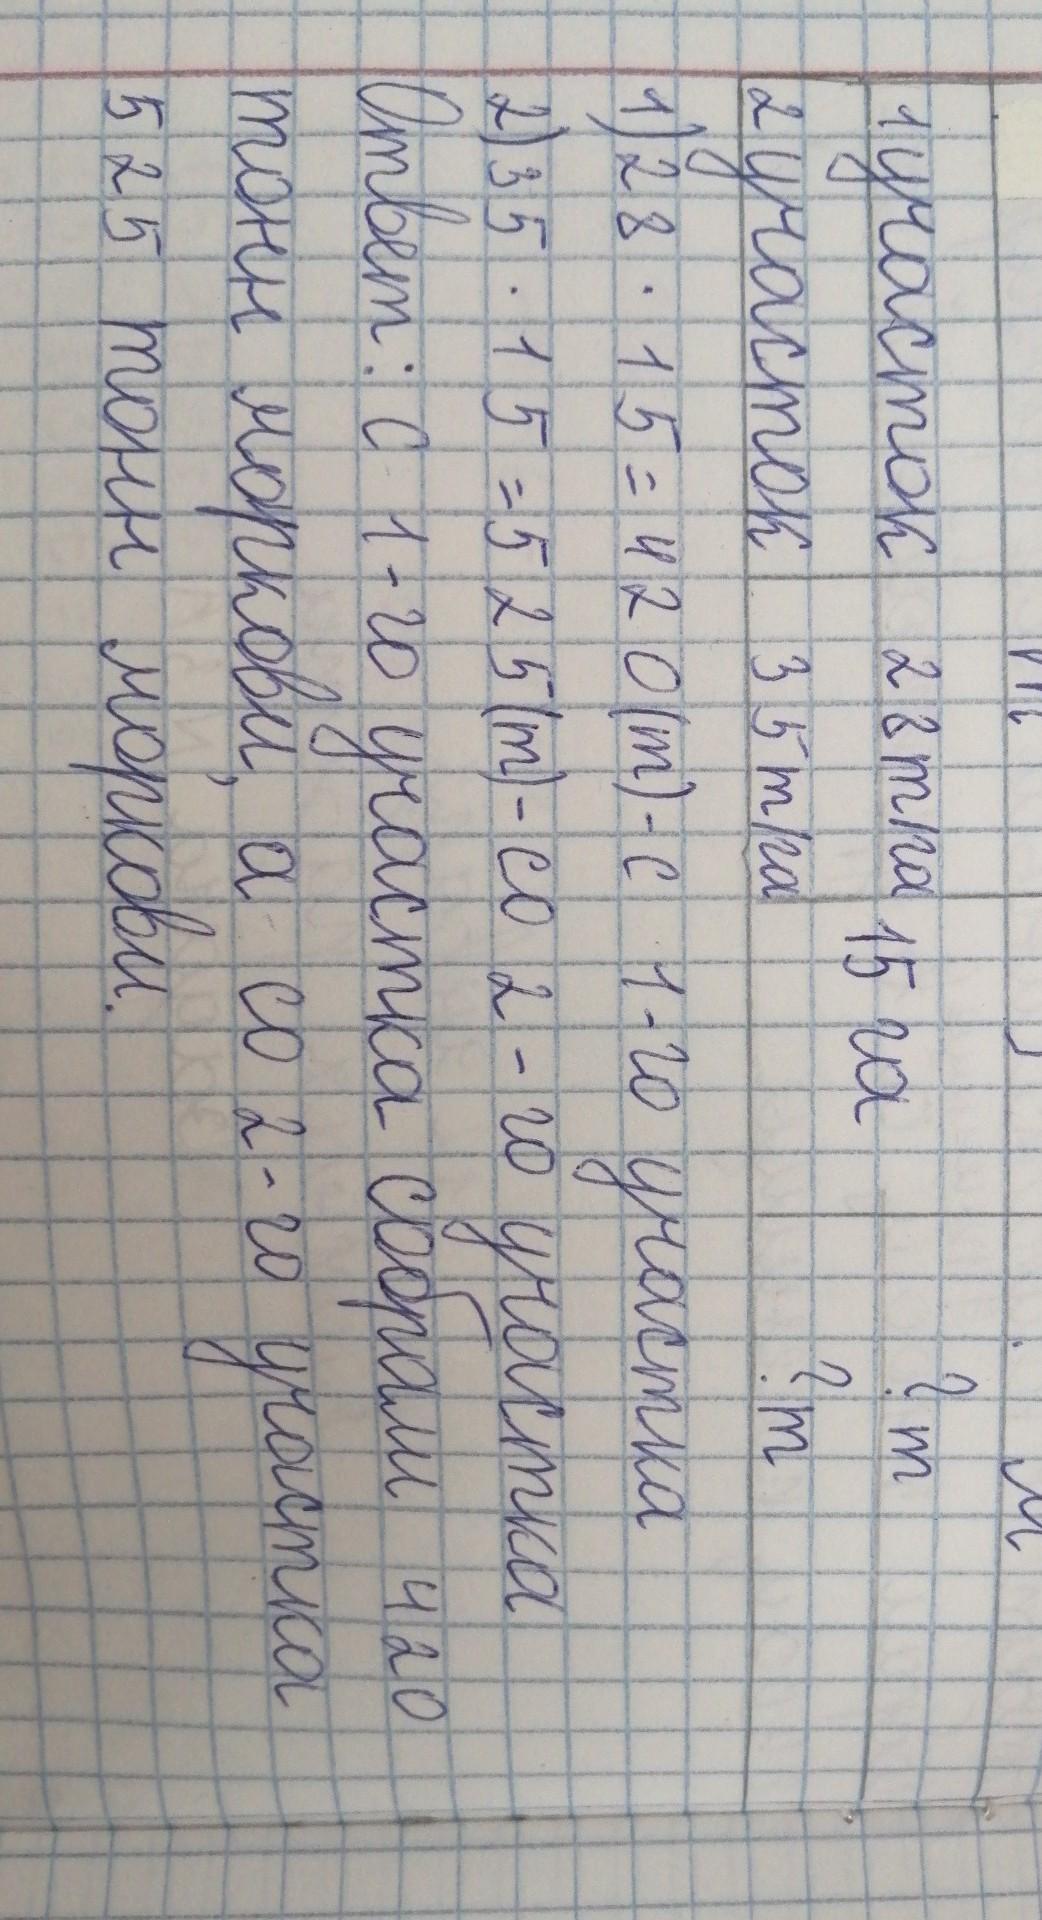 1 участок 28 т/га 15 га ? т
2 участок 35 т/га ? т
1) 28 · 15 = 420 (т) - с 1-го участка
2) 35 · 15 = 525 (т) - со 2-го участка
Ответ: с 1-го участка собрали 420
тонн моркови, а со 2-го участка
525 тонн моркови.